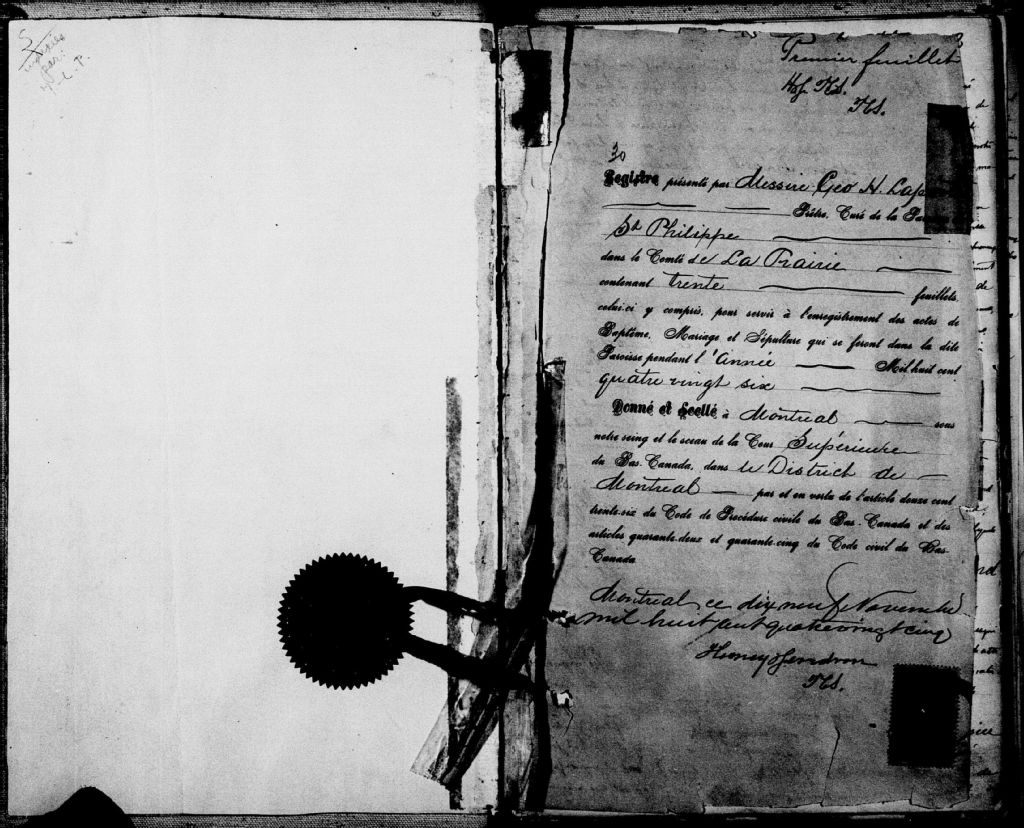 S
L. P.
Premier feuillet
H&G. P.S.
P.S.
30
Registre présenté par Messire Geo H. Lap
Prêtre, Curé de la Paroisse
St Philippe
dans le Comté de La Prairie
contenant trente feuillets,
celui-ci y compris, pour servir à l'enregistrement des actes de
Baptême, Mariage et Sépulture qui se feront dans la dite
Paroisse pendant l'Année Mil huit cent
quatre vingt six
Donné et Scellé à Montreal sous
notre seing et le sceau de la Cour Supérieure
du Bas-Canada, dans le District de
Montreal par et en vertu de l'article deux cent
trente-six du Code de Procédure civile du Bas-Canada et des
articles quarante-deux et quarante-cinq du Code civil du Bas-
Canada
Montreal ce dix neuf Novembre
mil huit cent quatre vingt cinq
Honey & Gendron
P.S.